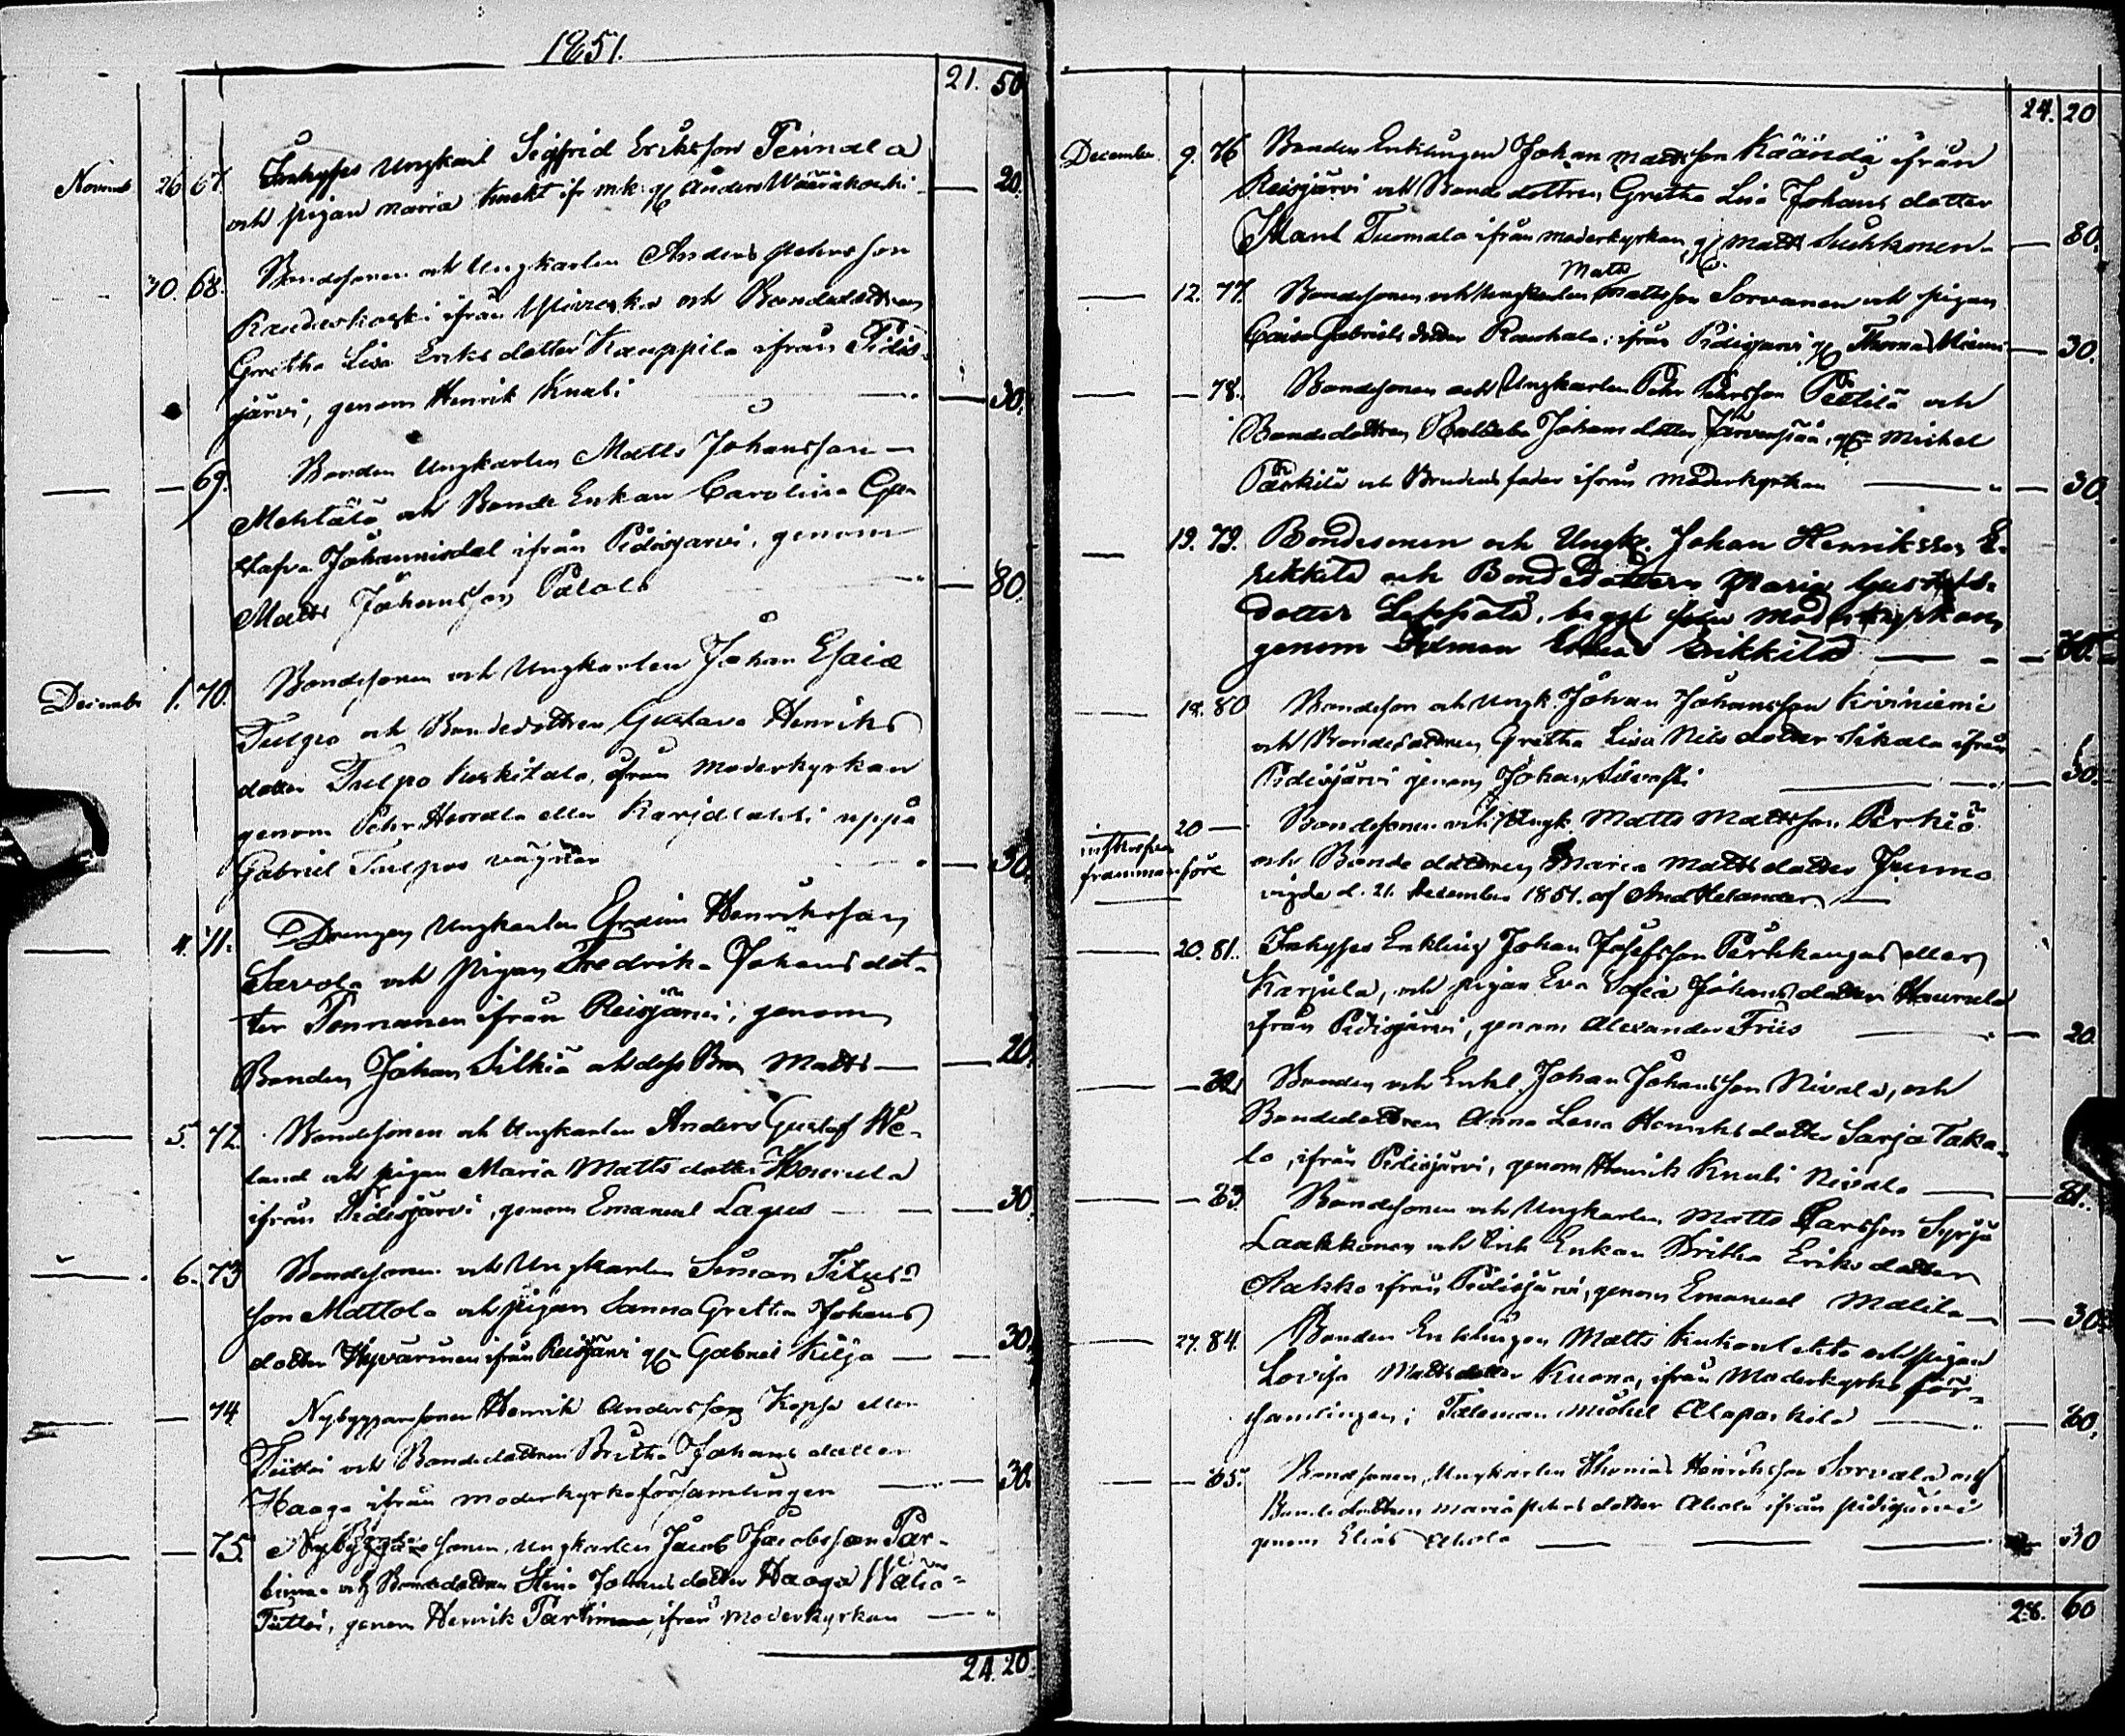 1851.
21. 50
Novemb 26 67. Inhyses Ungkarl Sigfrid Eriksson Teinala
och pigan Maria ifr mk. gm Anders Wääräkoski — 20.
30. 68. Bondesonen och Ungkarlen Anders Pehrsson
Raudaskoski ifrån Ylivieska och Bondedottren
Gretha Lisa Eriksdotter Kauppila ifrån Pidis-
järvi, genom Henrik Knuti — 30.
— — 69. Bonden Ungkarlen Matts Johansson
Mehtälä och Bonde Enkan Carolina Gu-
stafva Johannisdal ifrån Pidisjärvi, genom
Matts Johansson Palola — 80.
December 1. 70. Bondesonen och Ungkarlen Johan Esaia
Tulpo och Bondedottren Gustava Henriks
dotter Tulpo Koskitalo, ifrån Moderkyrkan
genom Pehr Herrala eller Karjalahti uppå
Gabriel Tulpos vägnar — 30.
— 4. 71. Drengen Ungkarlen Efraim Henriksson
Savola och pigan Fredrika Johansdot-
ter Tennanen ifrån Reisjärvi, genom
Bonden Johan Silkiä och dess Bror Matts — 20.
— 5. 72. Bondesonen och Ungkarlen Anders Gustaf We-
land och pigan Maria Mattsdotter
ifrån Pidisjärvi, genom Emanuel Lagus — 30.
— 6. 73 Bondesonen och Ungkarlen Simon
son Mattola och pigan Sanna Gretha Johans
dotter Hyvärinen ifrån Reisjärvi gm Gabriel Kilja — 30.
— — 74 Nybyggaresonen Henrik Andersson Kopsa eller
Tuittoi och Bondedottren Britha Johans dotter
Haaga ifrån moderkyrkoförsamlingen — 30.
— — 75. Nybyggaresonen, Ungkarlen Jacob Jacobsson Par-
och Bondedottren Stina Johansdotter Haaga
genom Henrik ifrån Moderkyrkan —
24. 20.
24. 20
December 9. 76 Bonden Enklingen Johan Mattsson Käändä ifrån
Reisjärvi och Bondedottren Gretha Lisa Johans dotter
Tuomala ifrån moderkyrkan, gm Matts Suhkonen — 80.
Matts
— 12. 77. Bondesonen och Ungkarlen Mattsson Sorvanen och pigan
Caisa Gabriels dotter Rauhala, ifrån Pidisjärvi gm Thomas — 30.
— — 78. Bondesonen och Ungkarlen Pehr Pehrsson Pietilä och
Bondedottren Johans dotter Järvenpää, gm Michel
Parkila och Brudens fader ifrån moderkyrkan — 30
— 19. 79. Bondesonen och Ungk. Johan Henriksson E-
rikkilä och Bondedottern Maria Gustafs-
dotter Leppälä, begge från Moderkyrkan,
genom Erikkilä — 30.
— 19. 80 Bondeson och Ungk. Johan Johansson Kiviniemi
och Bondedottren Gretha Lisa Nils dotter Sikala ifrån
Pidisjärvi genom Johan — 30.
20 — Bondesonen och Ungk. Matts Mattsson Perkiö
inskrefven
frammanföre och Bonde dottren Maria Matts dotter Junno
vigde d. 21 December 1851. af And Helander —
— 20. 81. Inhyses Enkling Johan Josefsson Pärkkangas eller
Karjula, och pigan Eva Sofia Johans dotter
ifrån Pidisjärvi, genom Alexander Friis — 20.
— — 82 Bonden och Enkl. Johan Johansson Nivala, och
Bondedottren Anna Lena Henriksdotter Sarja Taka-
lo, ifrån Pidisjärvi, genom Henrik Knuti Nivala — 81.
— — 83 Bondesonen och Ungkarlen Matts Larsson Syrjä
Laakkonen och Enkan Britha Eriks dotter
ifrån Pidisjärvi, genom Emanuel Matila — 30.
— 27. 84. Bonden Enklingen Matts Kukonlehto och pigan
Lovisa Mattsdotter Kuona, ifrån Moderkyrko för-
samlingen; Taleman Michel Alaparkila — 80.
— — 85. Bondesonen, Ungkarlen Thomas Henriksson Sorvala och
Bondedottren Maria Pehrsdotter Ahola ifrån Pidisjärvi
genom Elias Ahola — 30
28. 60